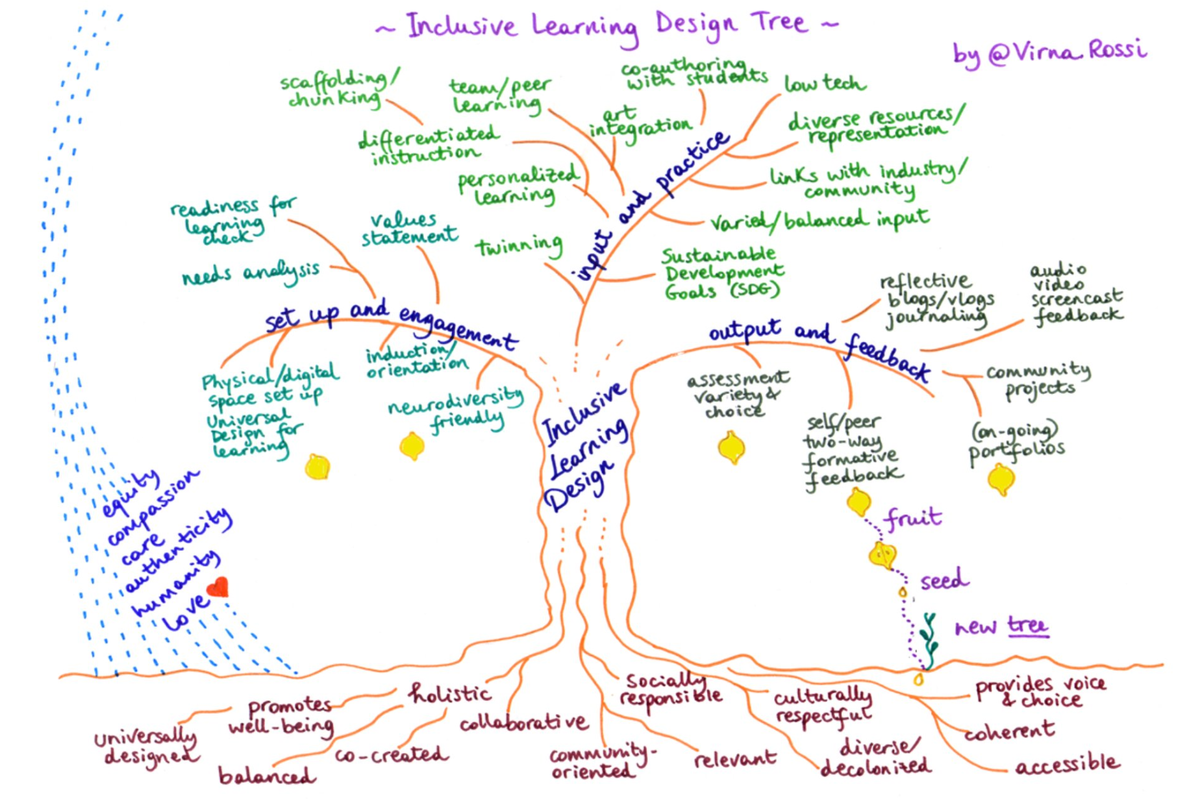 ~ Inclusive Learning Design Tree ~
by @Virna Rossi
scaffolding/
chunking
team/peer
learning
co-authoring
with students
low tech
differentiated
instruction
art
integration
diverse resources/
representation
personalized
learning
links with industry/
community
input and practice
varied/balanced input
twinning
Sustainable
Development
Goals (SDG)
readiness for
learning
check
values
statement
needs analysis
set up and engagement
Physical/digital
space set up
Universal
Design for
learning
induction/
orientation
neurodiversity
friendly
reflective
blogs/vlogs
journaling
audio
video
screencast
feedback
output and feedback
assessment
variety &
choice
self/peer
two-way
formative
feedback
community
projects
(on-going)
portfolios
Inclusive
Learning
Design
equity
compassion
care
authenticity
humanity
love
fruit
seed
new tree
universally
designed
promotes
well-being
balanced
holistic
co-created
collaborative
community-
oriented
Socially
responsible
relevant
culturally
respectful
diverse/
decolonized
provides voice
& choice
coherent
accessible